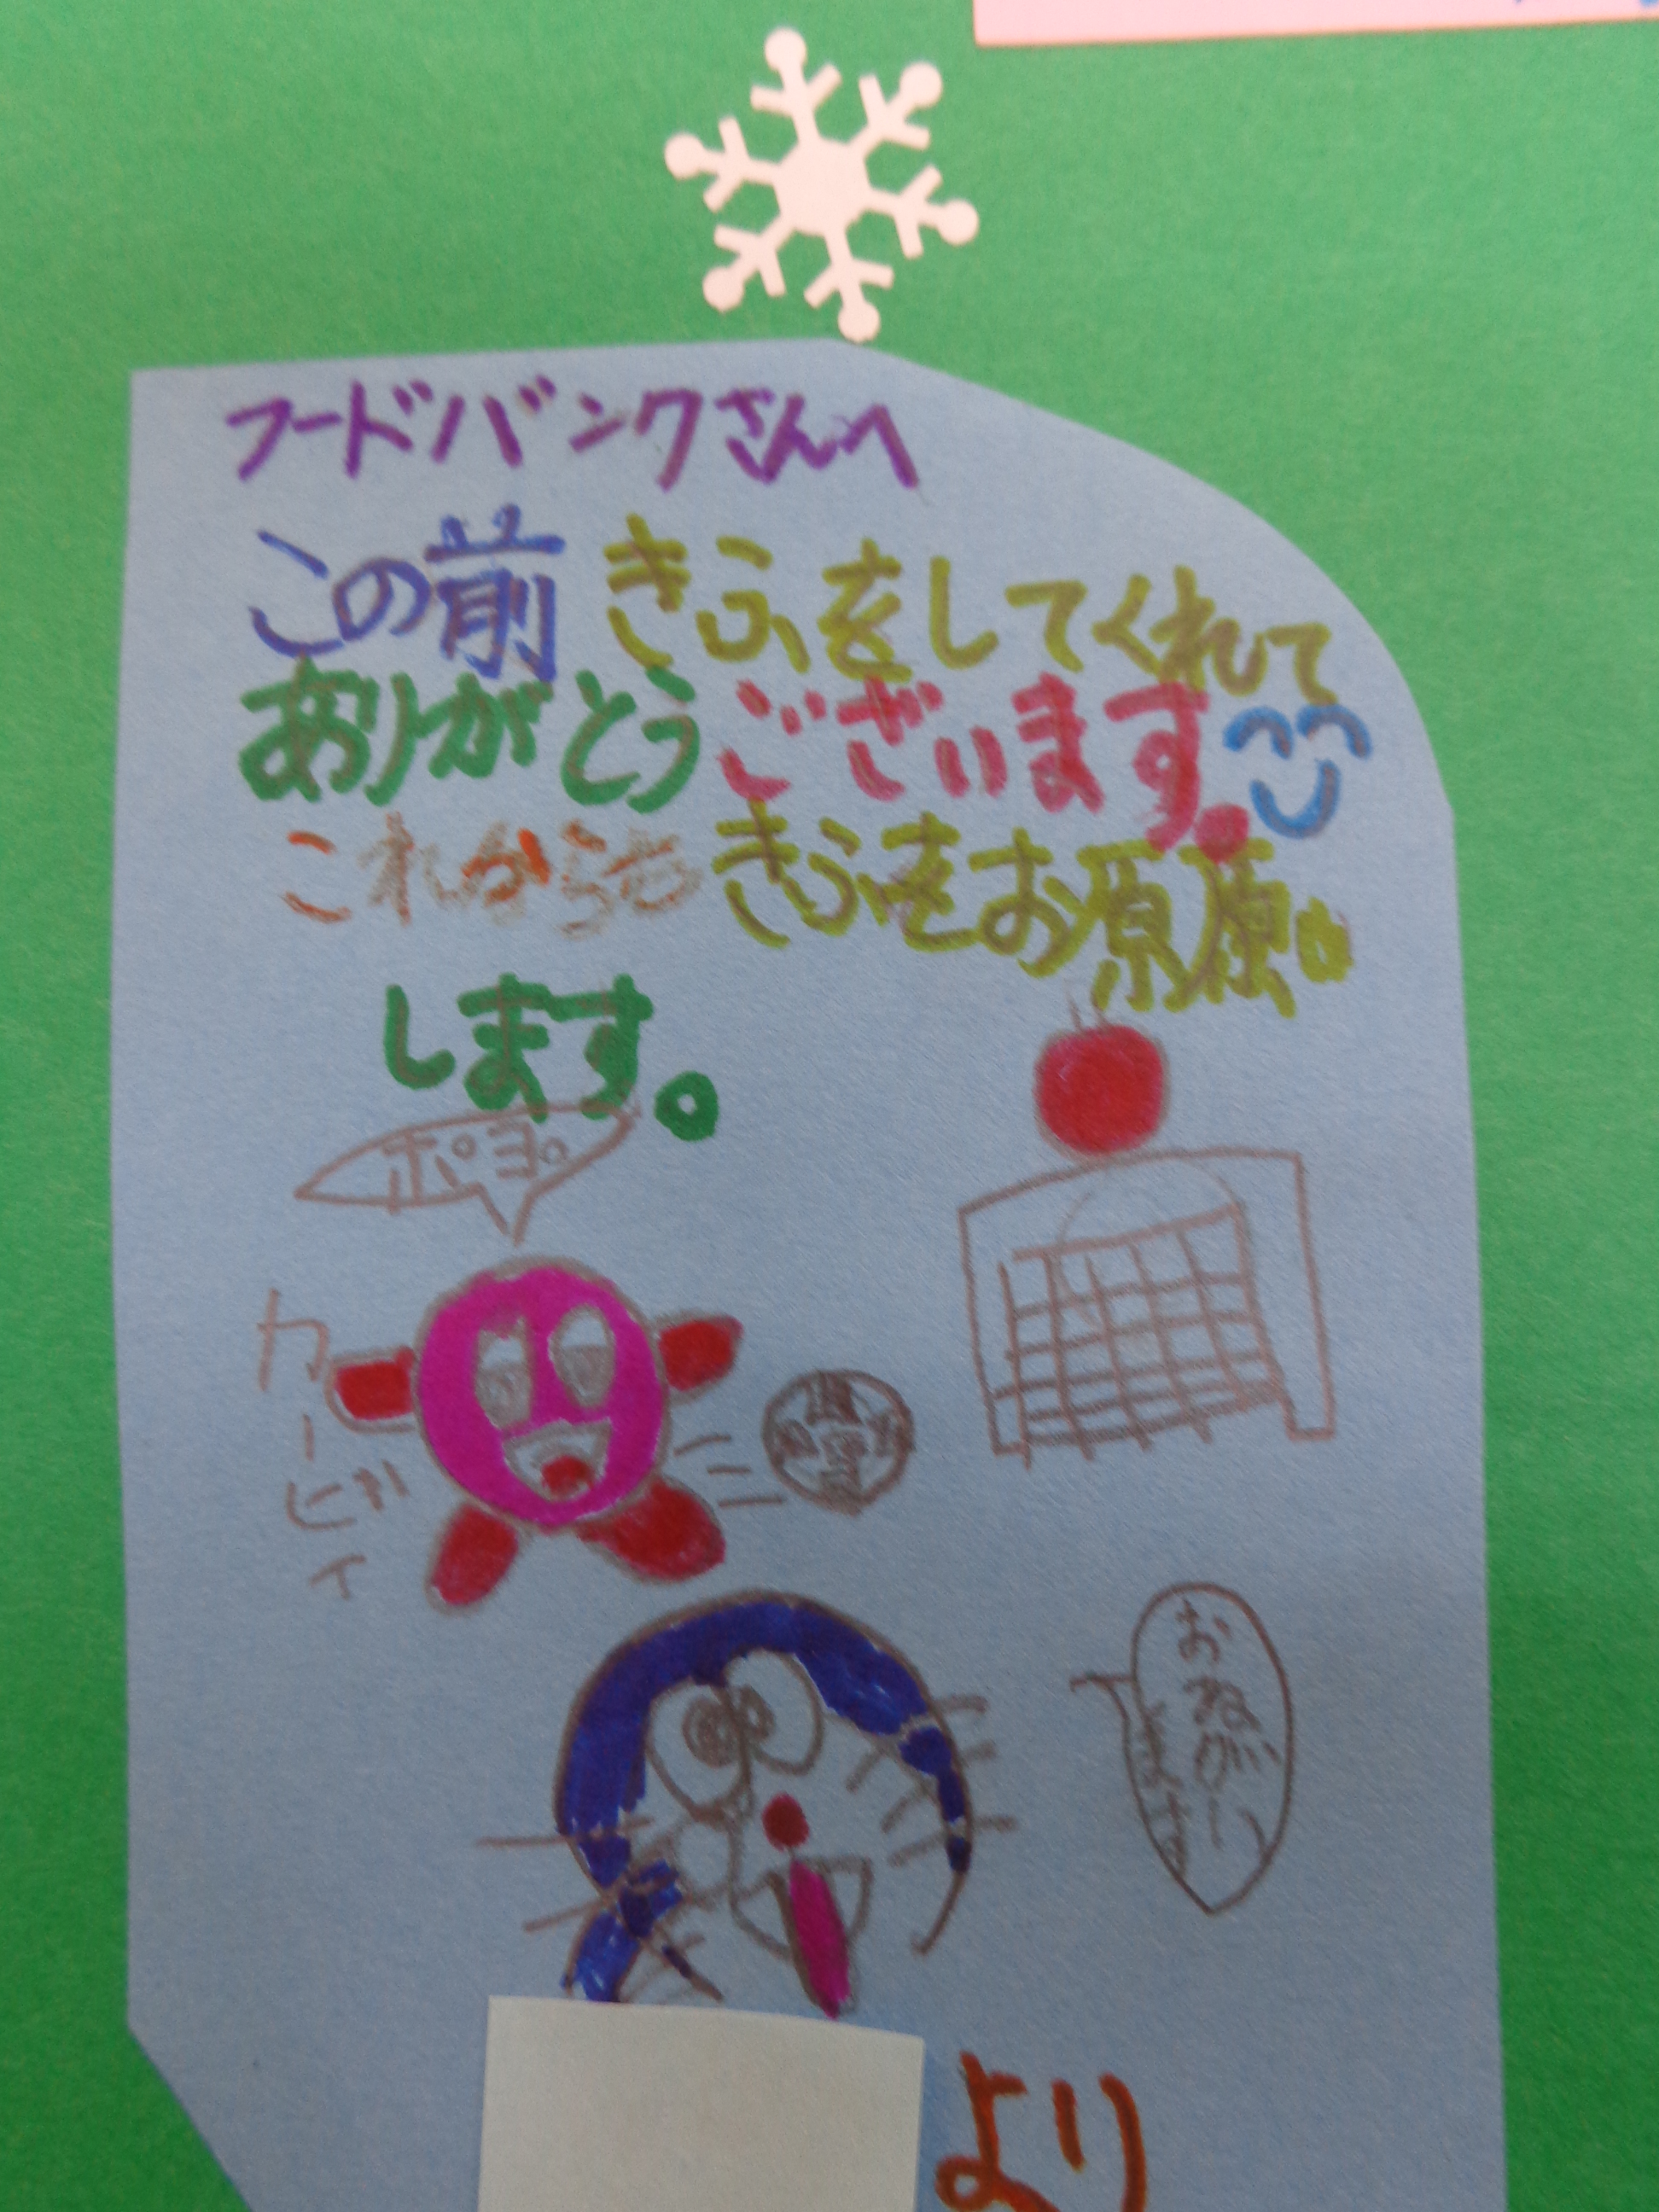 フードバンクさんへ
この前きふをしてくれて
ありがとうございます。
これからもきふをお原原い
します。
ポヨ。
カービィ
おねがい
します
より